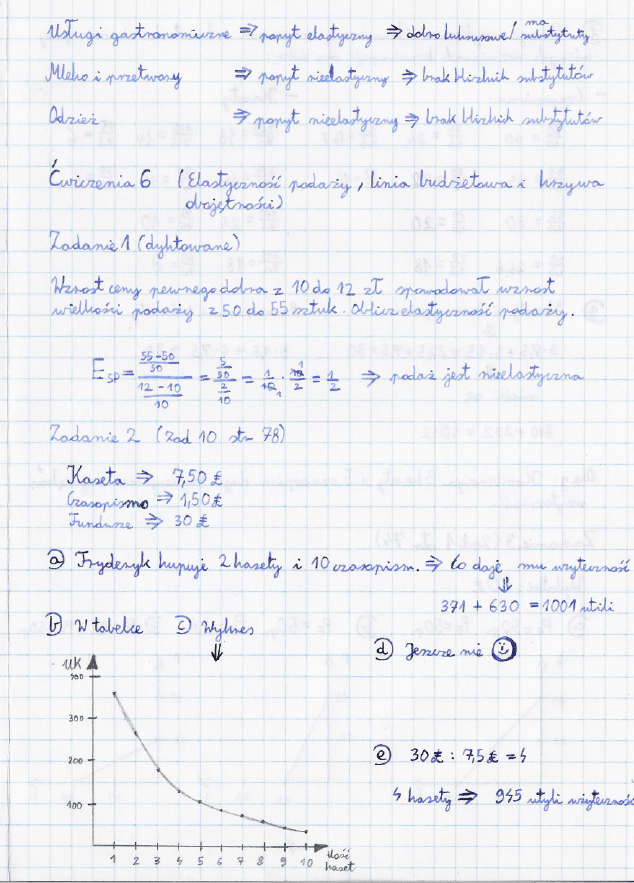 Usługi gastronomiczne ⇒ popyt elastyczny ⇒ dobro luksusowe/ ma substytuty
Mleko i przetwory ⇒ popyt nieelastyczny ⇒ brak bliskich substytutów
Odzież ⇒ popyt nieelastyczny ⇒ brak bliskich substytutów
Ćwiczenia 6 (Elastyczność podaży, linia budżetowa i krzywa
obojętności)
Zadanie 1 (dyktowane)
Wzrost ceny pewnego dobra z 10 do 12 zł spowodował wzrost
wielkości podaży z 50 do 55 sztuk. Oblicz elastyczność podaży.
E_SP = ((55-50)/50)/((12-10)/10) = (5/50)/(2/10) = 1/10 · 10/2 = 1/2 ⇒ podaż jest nieelastyczna
Zadanie 2 (Zad 10 str 78)
Kaseta ⇒ 7,50 £
Czasopismo ⇒ 1,50 £
Fundusze ⇒ 30 £
a) Fryderyk kupuje 2 kasety i 10 czasopism. ⇒ Co daje mu użyteczność
⇓
371 + 630 = 1001 utili
b) W tabelce c) Wykres
⇓
d) Jeszcze nie ☺
UK
300
200
100
1 2 3 4 5 6 7 8 9 10
ilość
kaset
e) 30 £ : 7,5 £ = 4
4 kasety ⇒ 945 utyli użyteczność